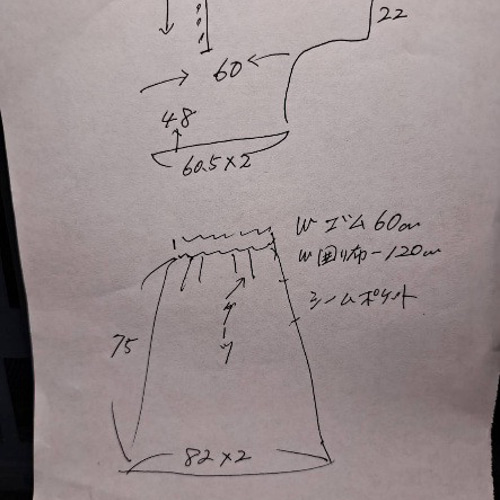 22
60
48
60.5×2
W ゴム 60cm
W 囲り布-120cm
シームポケット
75
82×2